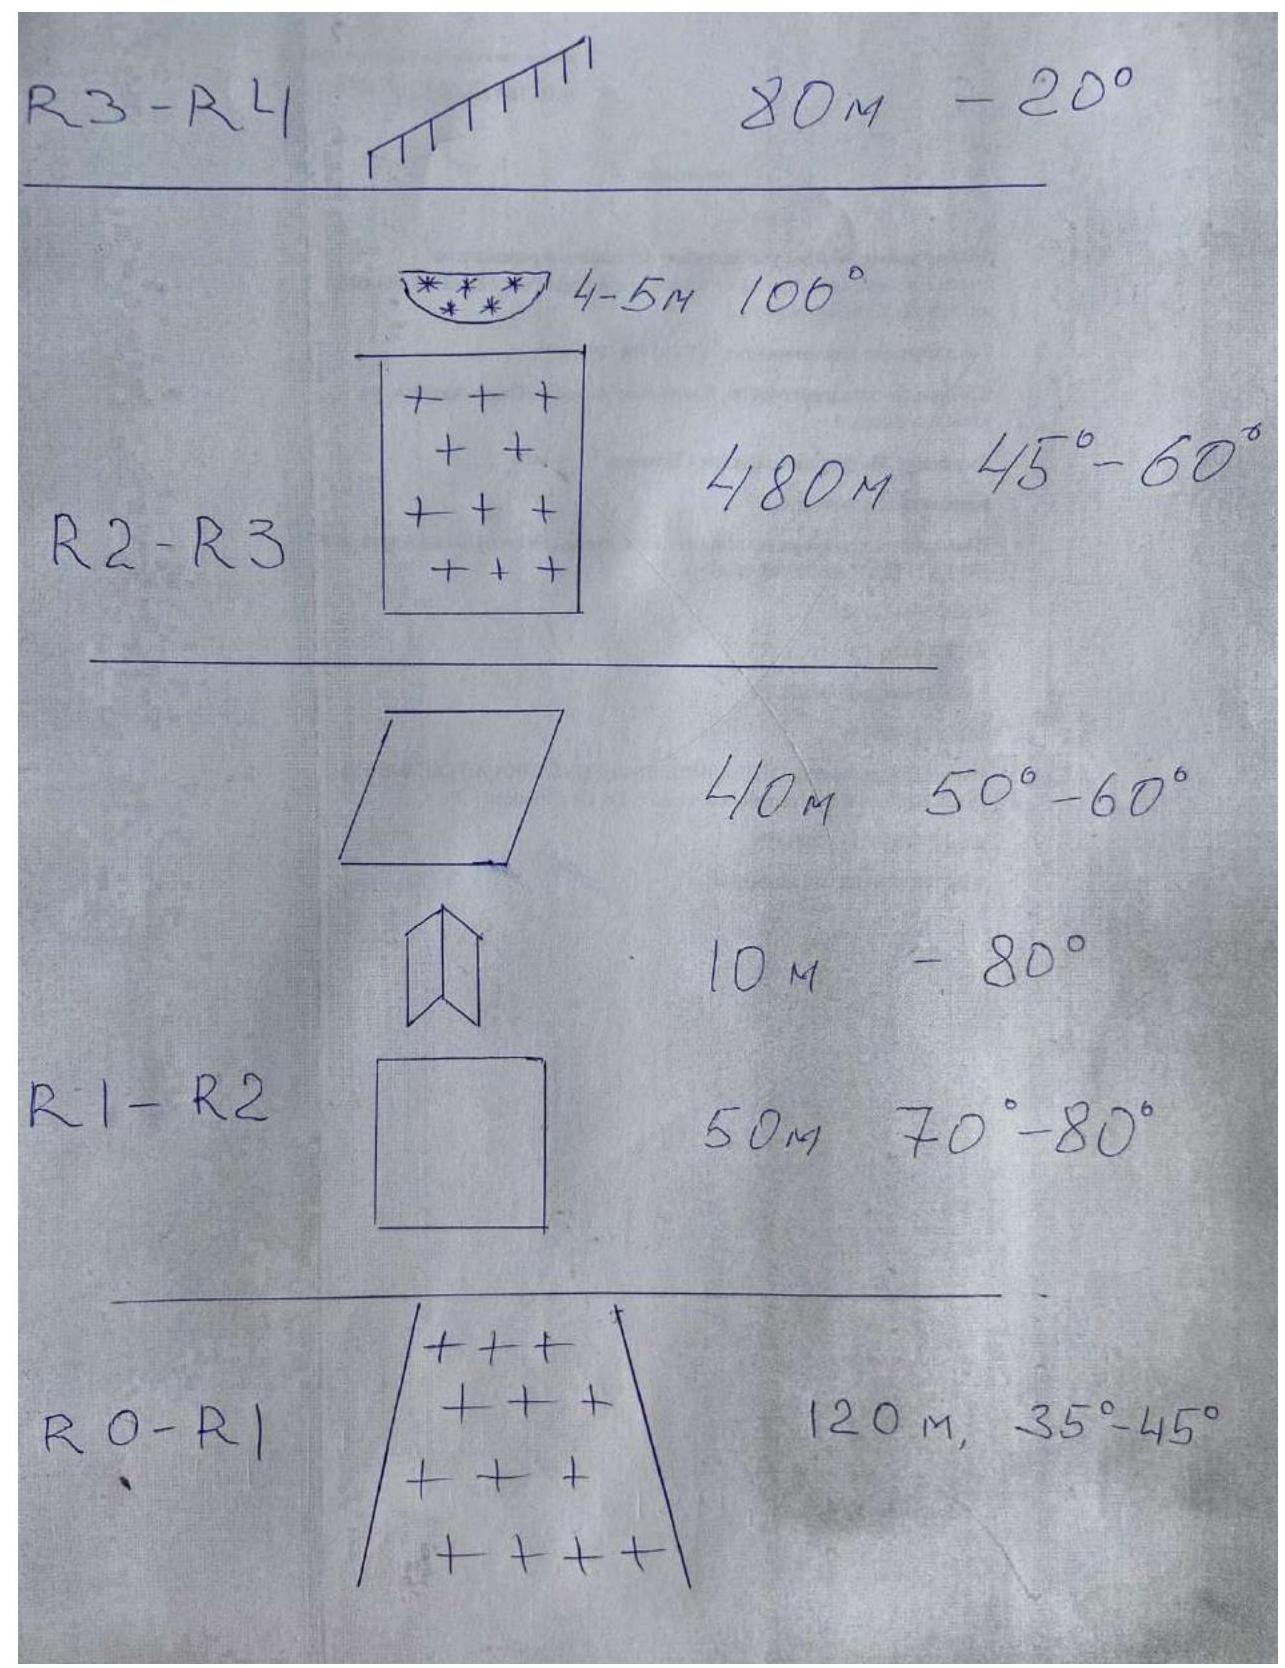 R3-R4 80м - 20°
4-5м 100°
480м 45°-60°
R2-R3
40м 50°-60°
10м - 80°
R1-R2
50м 70°-80°
R0-R1 120м, 35°-45°